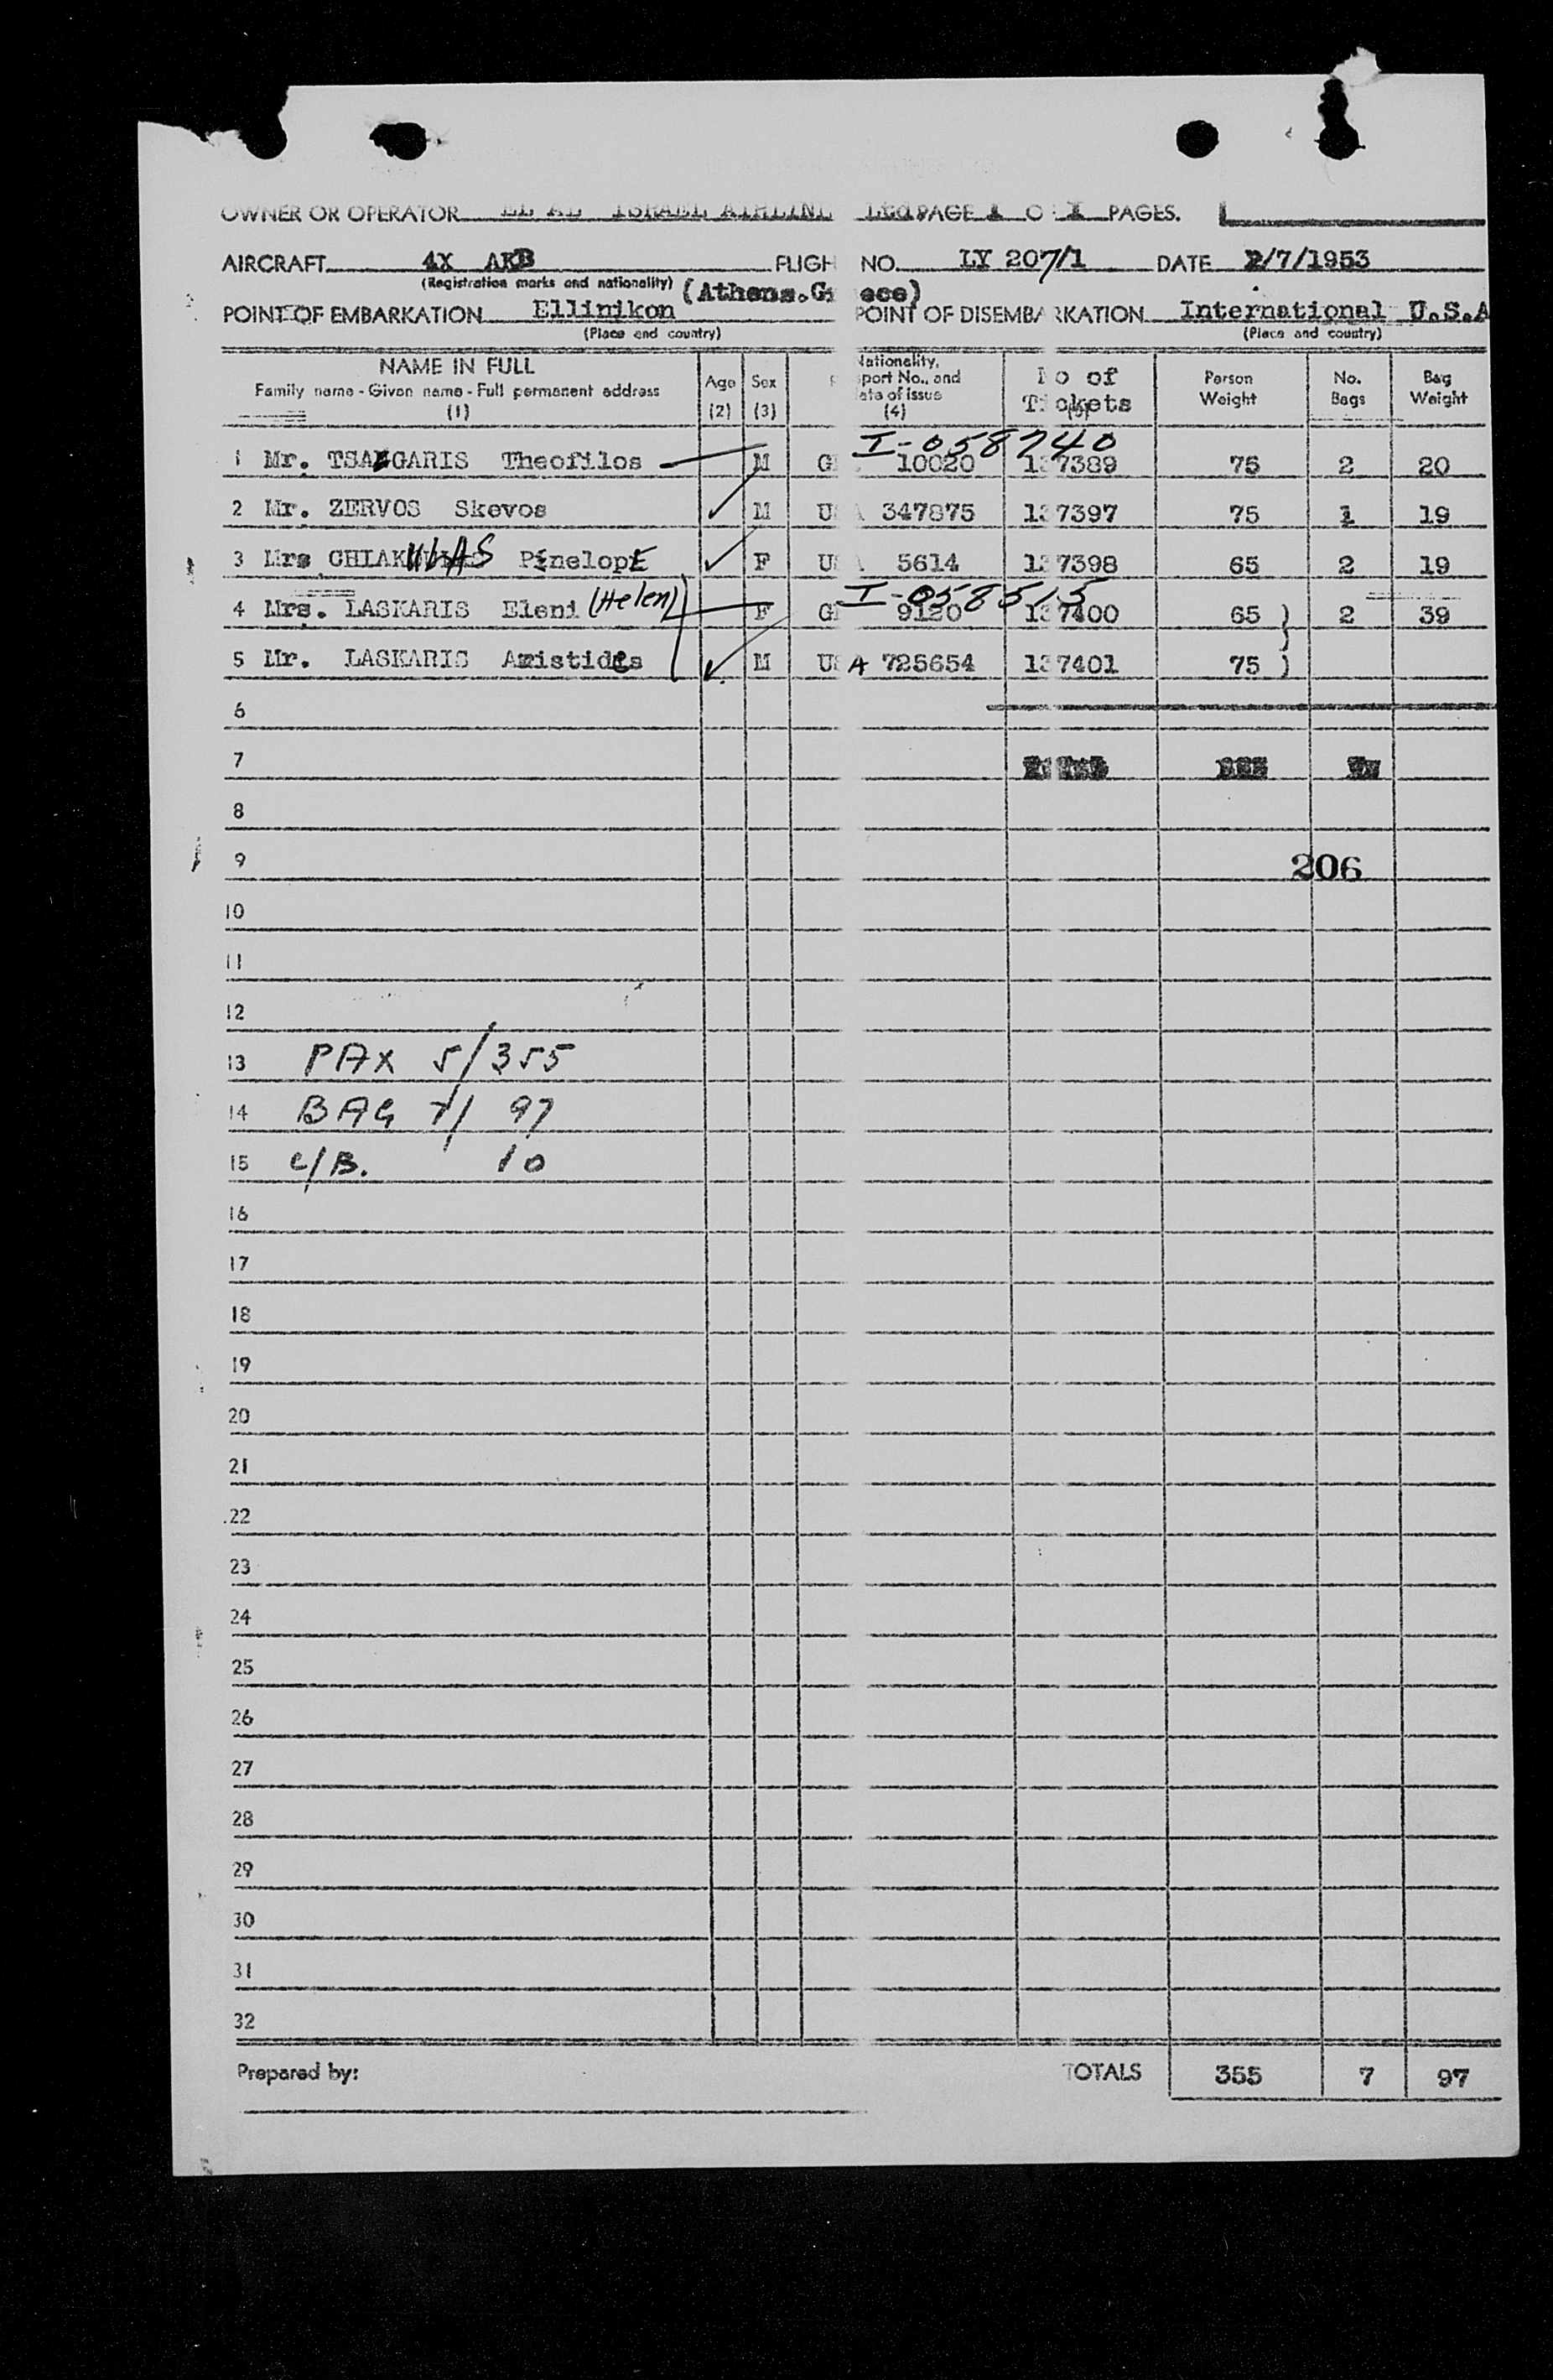 OWNER OR OPERATOR EL AL ISRAEL AIRLINE Ltd PAGE 1 O 1 PAGES.
AIRCRAFT 4X AKB FLIGH NO. LY 207/1 DATE 2/7/1953
(Registration marks and nationality) (Athens.G ece)
POINT OF EMBARKATION Ellinikon POINT OF DISEMBARKATION International U.S.A
(Place and country) (Place and country)
NAME IN FULL
Family name - Given name - Full permanent address
(1)
Age
(2)
Sex
(3)
Nationality,
port No., and
ate of issue
(4)
No of
Tickets
(5)
Person
Weight
No.
Bags
Bag
Weight
I-058740
1 Mr. TSANGARIS Theofilos M G 10020 137389 75 2 20
2 Mr. ZERVOS Skevos M U 347875 137397 75 1 19
3 Mrs CHIAKULAS PinelopE F U 5614 137398 65 2 19
I-058515
4 Mrs. LASKARIS Eleni (Helen) F G 9120 137400 65 ) 2 39
5 Mr. LASKARIS Aristides M USA 725654 137401 75 )
6
7
8
9 206
10
11
12
13 PAX 5/355
14 BAG 7/ 97
15 C/B. 10
16
17
18
19
20
21
22
23
24
25
26
27
28
29
30
31
32
Prepared by: TOTALS 355 7 97